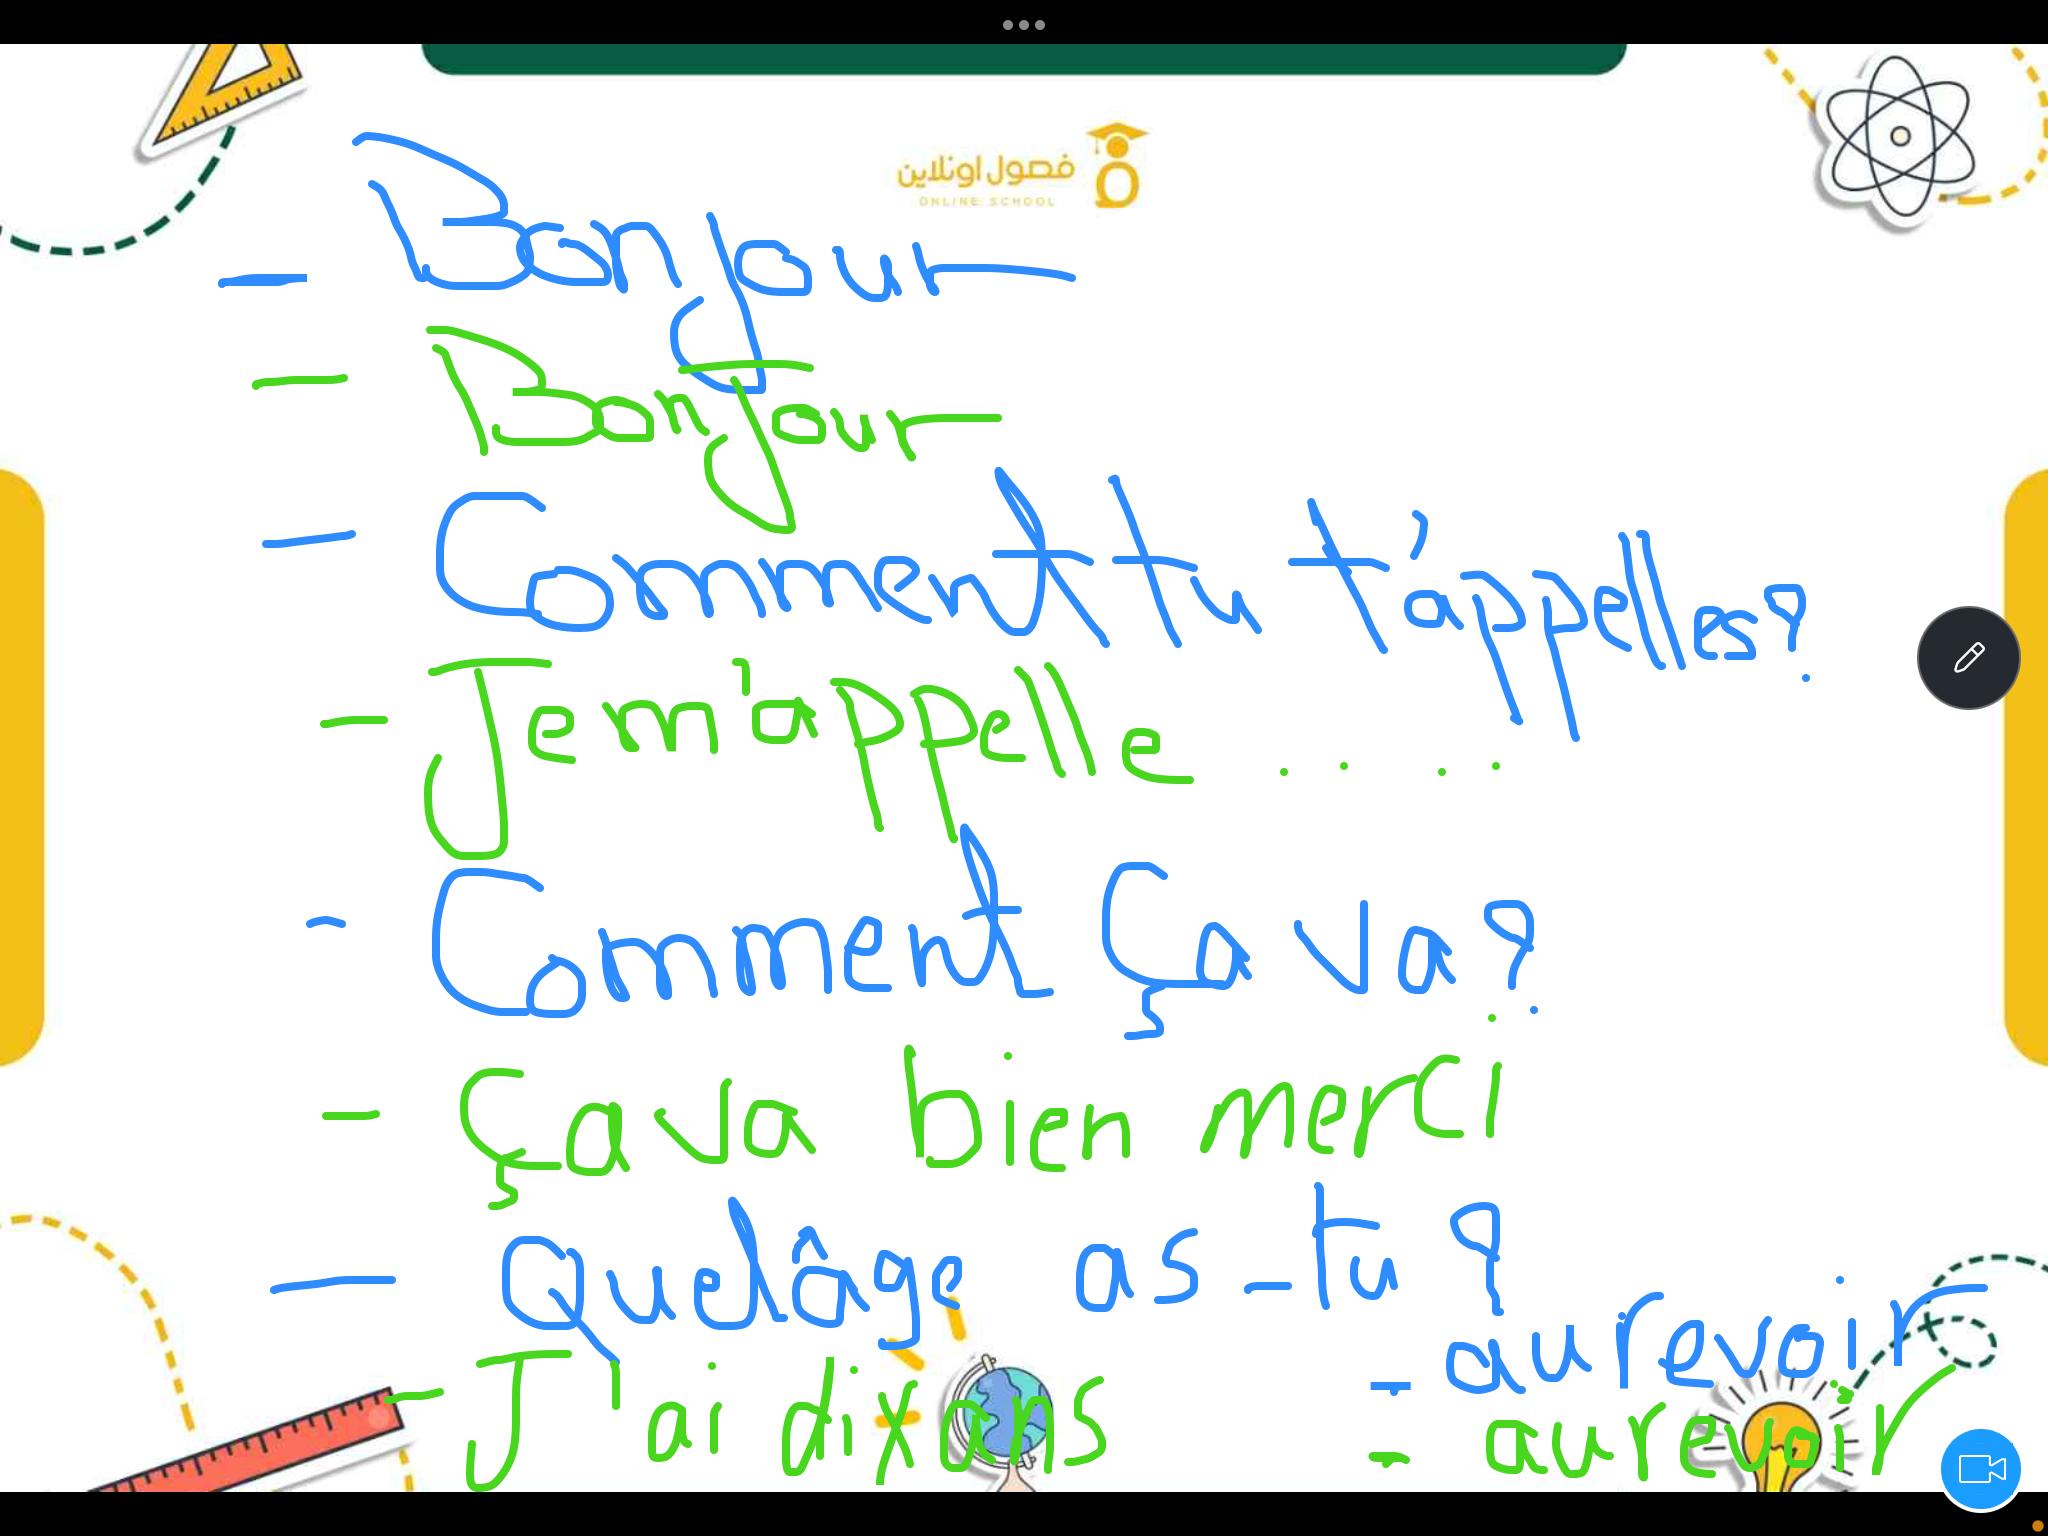 فصول اونلاين
ONLINE SCHOOL
- Bonjour
- Bonjour
- Comment tu t'appelles?
- Je m'appelle ....
- Comment ça va?
- ça va bien merci
- Quel âge as-tu?
- J'ai dix ans
- au revoir
- au revoir